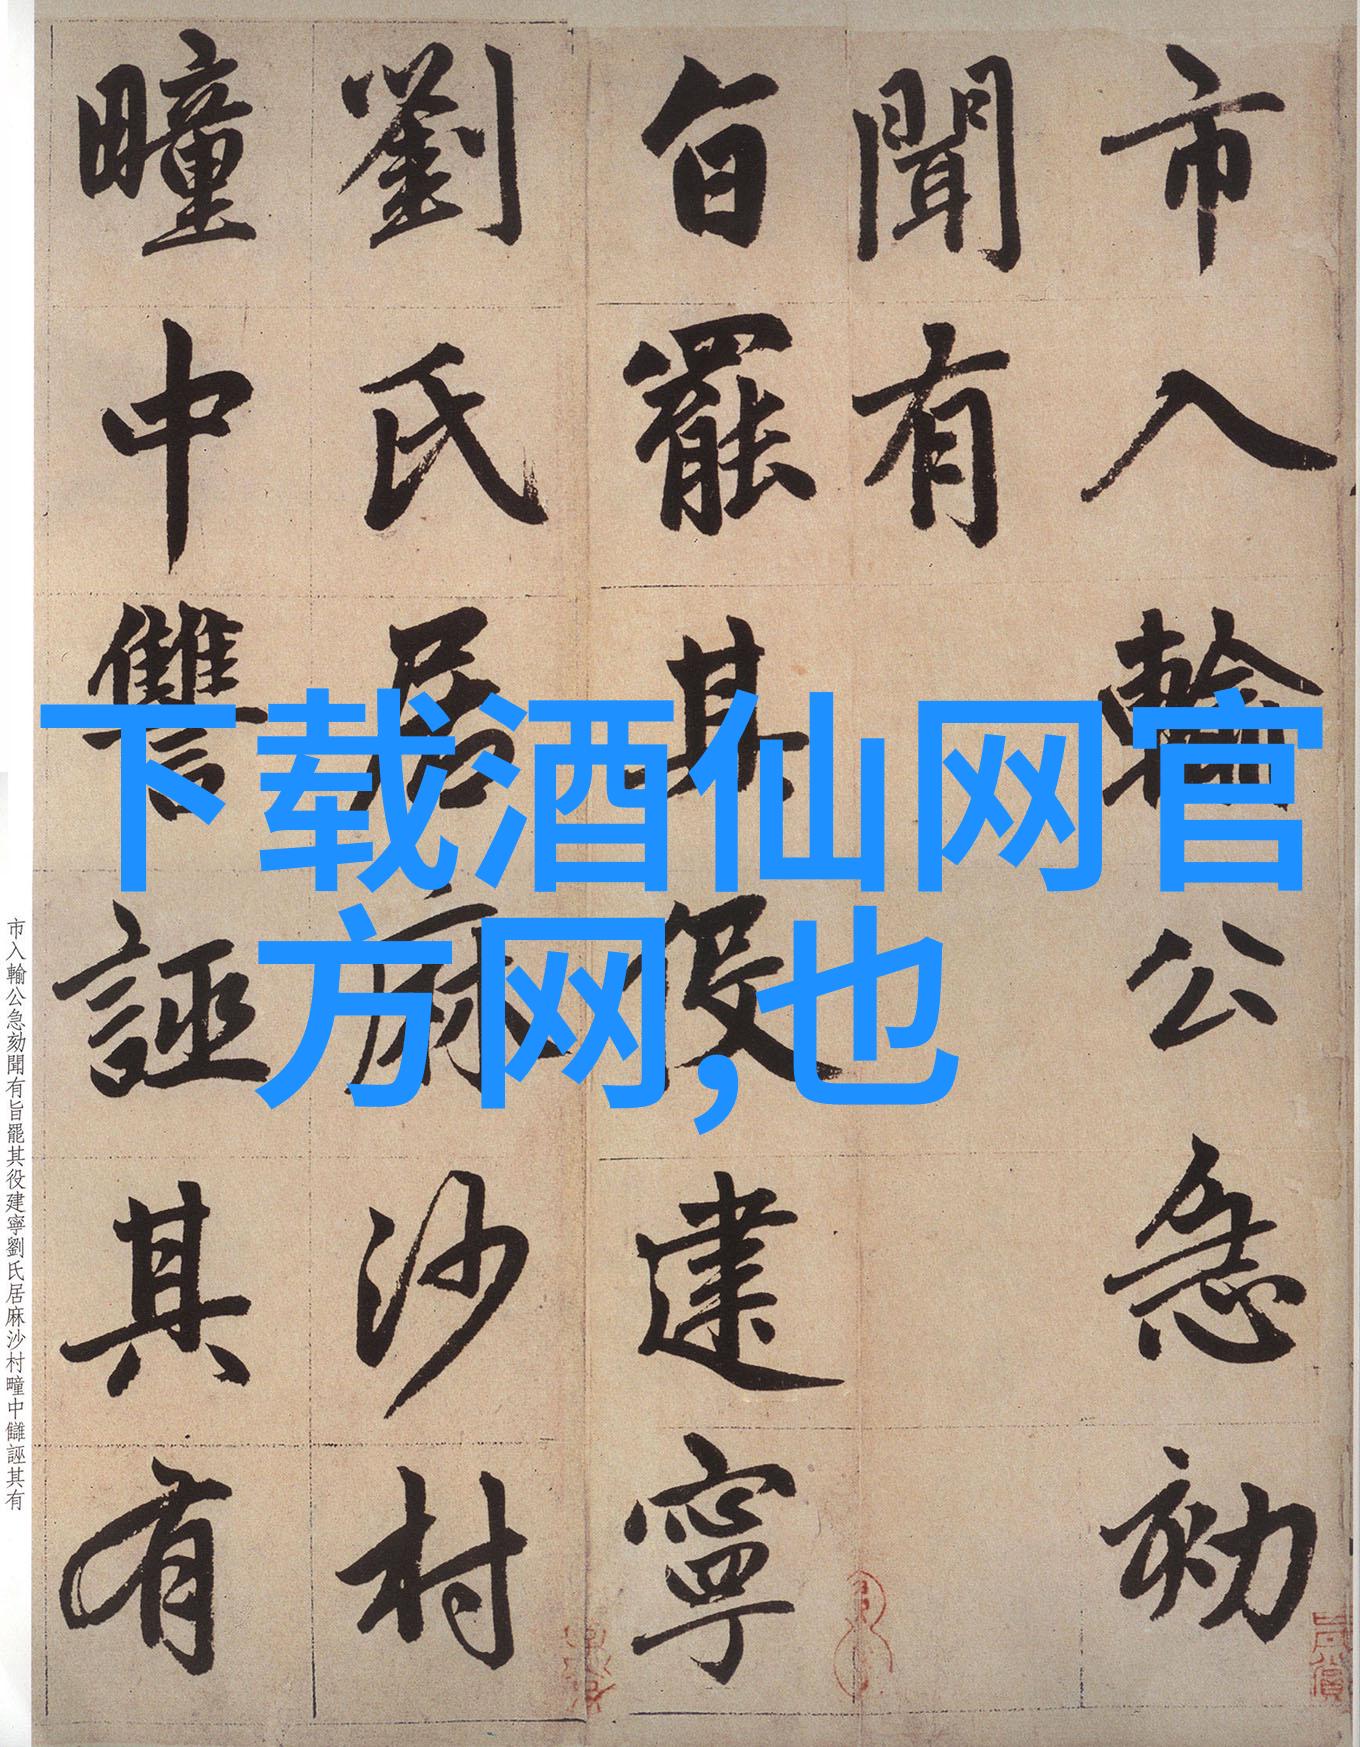 市入輸公急劾
聞有
旨罷其役建寧
劉氏居麻沙村
疃中讐誣其有
下载酒仙网官
方网,也
市入輸公急劾聞有旨罷其役建寧劉氏居麻沙村疃中讎誣其有